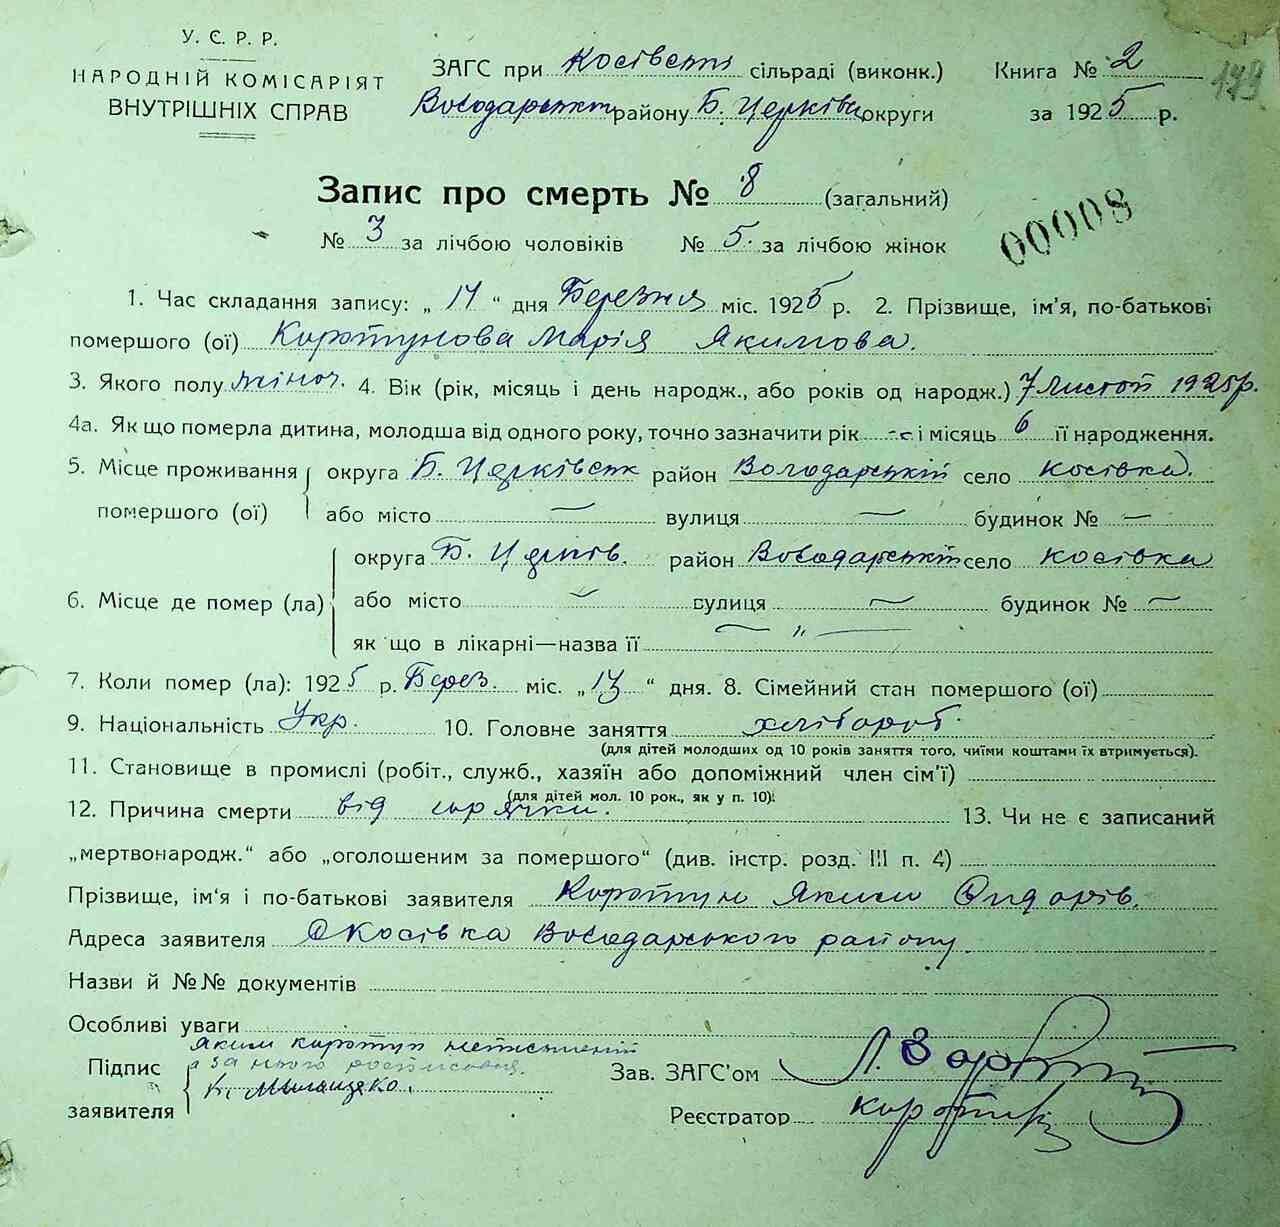 У. Є. Р. Р.
НАРОДНІЙ КОМІСАРІЯТ
ВНУТРІШНІХ СПРАВ
ЗАГС при Косівській сільраді (виконк.) Книга № 2
149
Володарськ району Б. Церків округи за 1925 р.
Запис про смерть № 8 (загальний)
№ 3 за лічбою чоловіків № 5. за лічбою жінок
00008
1. Час складання запису: „ 14 “ дня Березня міс. 1925 р. 2. Прізвище, ім'я, по-батькові
помершого (ої) Коротунова Марія Якимова.
3. Якого полу жіноч. 4. Вік (рік, місяць і день народж., або років од народж.) 7 Листоп 1925р.
4а. Як що померла дитина, молодша від одного року, точно зазначити рік - і місяць 6 її народження.
5. Місце проживання округа Б. Церківськ район Володарський село Косівка.
помершого (ої) або місто — вулиця — будинок № —
округа Б. Церків. район Володарській село Косівка
6. Місце де помер (ла) або місто — вулиця — будинок № —
як що в лікарні—назва її — „ —
7. Коли помер (ла): 1925 р. Берез. міс. „ 13 “ дня. 8. Сімейний стан помершого (ої)
9. Національність Укр. 10. Головне заняття хлібороб.
(для дітей молодших од 10 років заняття того, чиїми коштами їх втримується).
11. Становище в промислі (робіт., служб., хазяїн або допоміжний член сім'ї)
(для дітей мол. 10 рок., як у п. 10).
12. Причина смерти від горячки. 13. Чи не є записаний
„мертвонародж.“ або „оголошеним за помершого“ (див. інстр. розд. III п. 4)
Прізвище, ім'я і по-батькові заявителя Коротун Яким Сидорів.
Адреса заявителя С Косівка Володарського району
Назви й №№ документів
Особливі уваги
Яким Коротун неписьменій
Підпис а за нього росписався.
заявителя К.
Зав. ЗАГС'ом Л.
Реєстратор